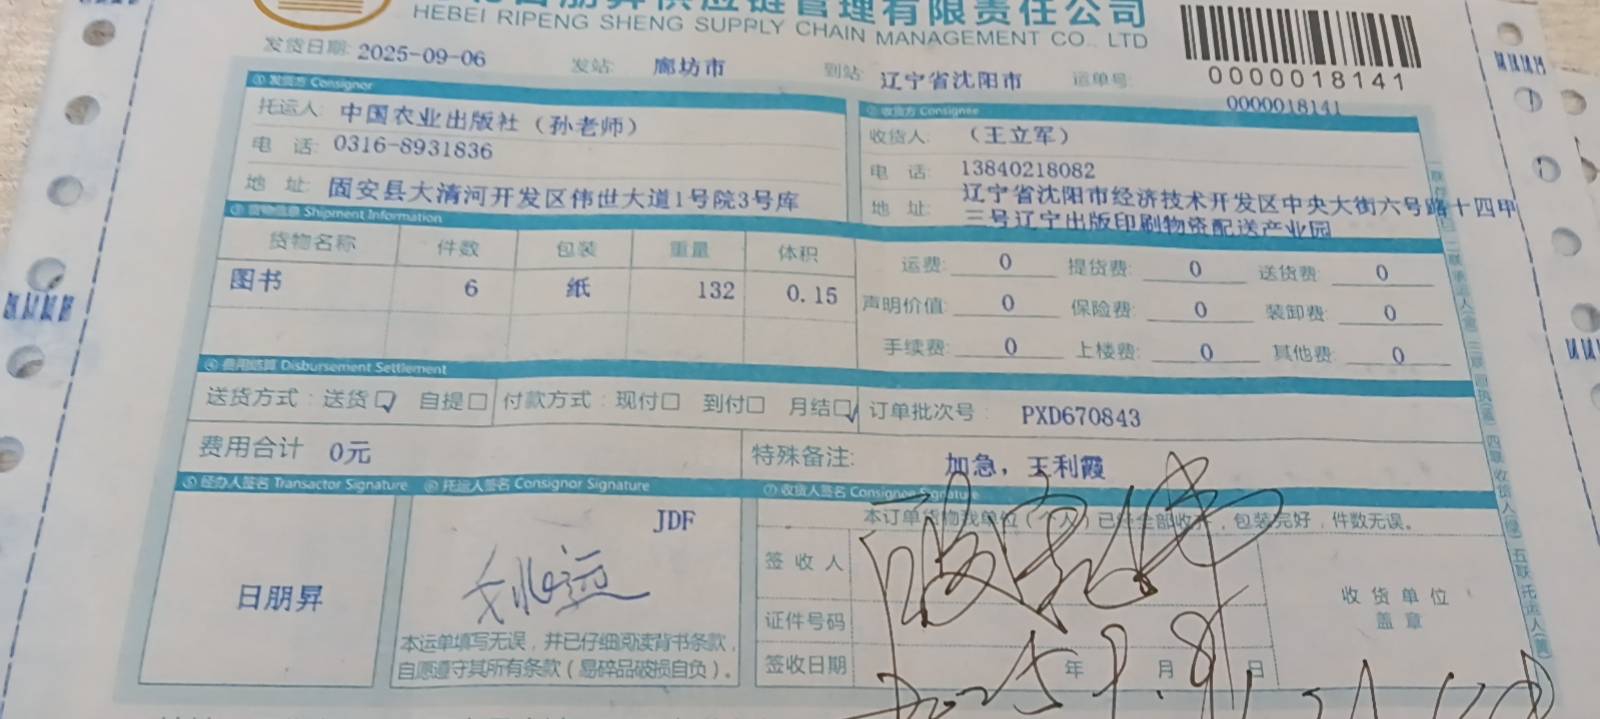 日朋昇供应链管理有限责任公司
HEBEI RIPENG SHENG SUPPLY CHAIN MANAGEMENT CO., LTD
0000018141
发货日期: 2025-09-06 发站: 廊坊市 到站: 辽宁省沈阳市 运单号: 0000018141
① 发货方 Consignor
托运人: 中国农业出版社（孙老师）
电 话: 0316-8931836
地 址: 固安县大清河开发区伟世大道1号院3号库
② 收货方 Consignee
收货人: （王立军）
电 话: 13840218082
地 址: 辽宁省沈阳市经济技术开发区中央大街六号路十四甲
三号辽宁出版印刷物资配送产业园
③ 货物信息 Shipment Information
货物名称 件数 包装 重量 体积
图书 6 纸 132 0.15
运费: 0 提货费: 0 送货费: 0
声明价值: 0 保险费: 0 装卸费: 0
手续费: 0 上楼费: 0 其他费: 0
④ 费用结算 Disbursement Settlement
送货方式: 送货☑ 自提□ 付款方式: 现付□ 到付□ 月结☑ 订单批次号: PXD670843
费用合计 0元 特殊备注: 加急，王利霞
⑤ 经办人签名 Transactor Signature
日朋昇
⑥ 托运人签名 Consignor Signature
JDF
本运单填写无误，并已仔细阅读背书条款，
自愿遵守其所有条款（易碎品破损自负）。
⑦ 收货人签名 Consignee Signature
本订单货物我单位（个人）已经全部收讫，包装完好，件数无误。
签 收 人
证件号码
签收日期 2025年9月8日
收 货 单 位
盖 章